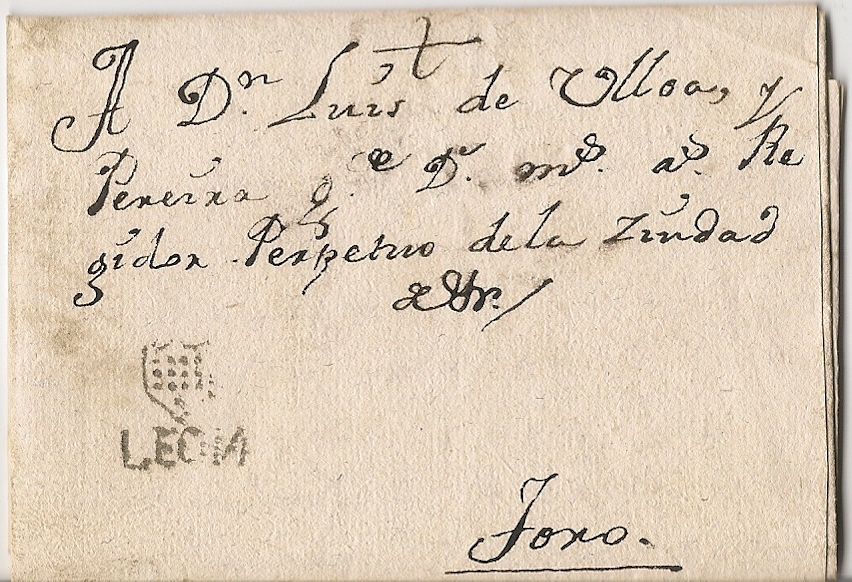 A Dn. Luis de Ulloa, y
Pereira q.e D.s m.s a.s Re
gidor Perpetuo dela Ziudad
LEON
Toro.